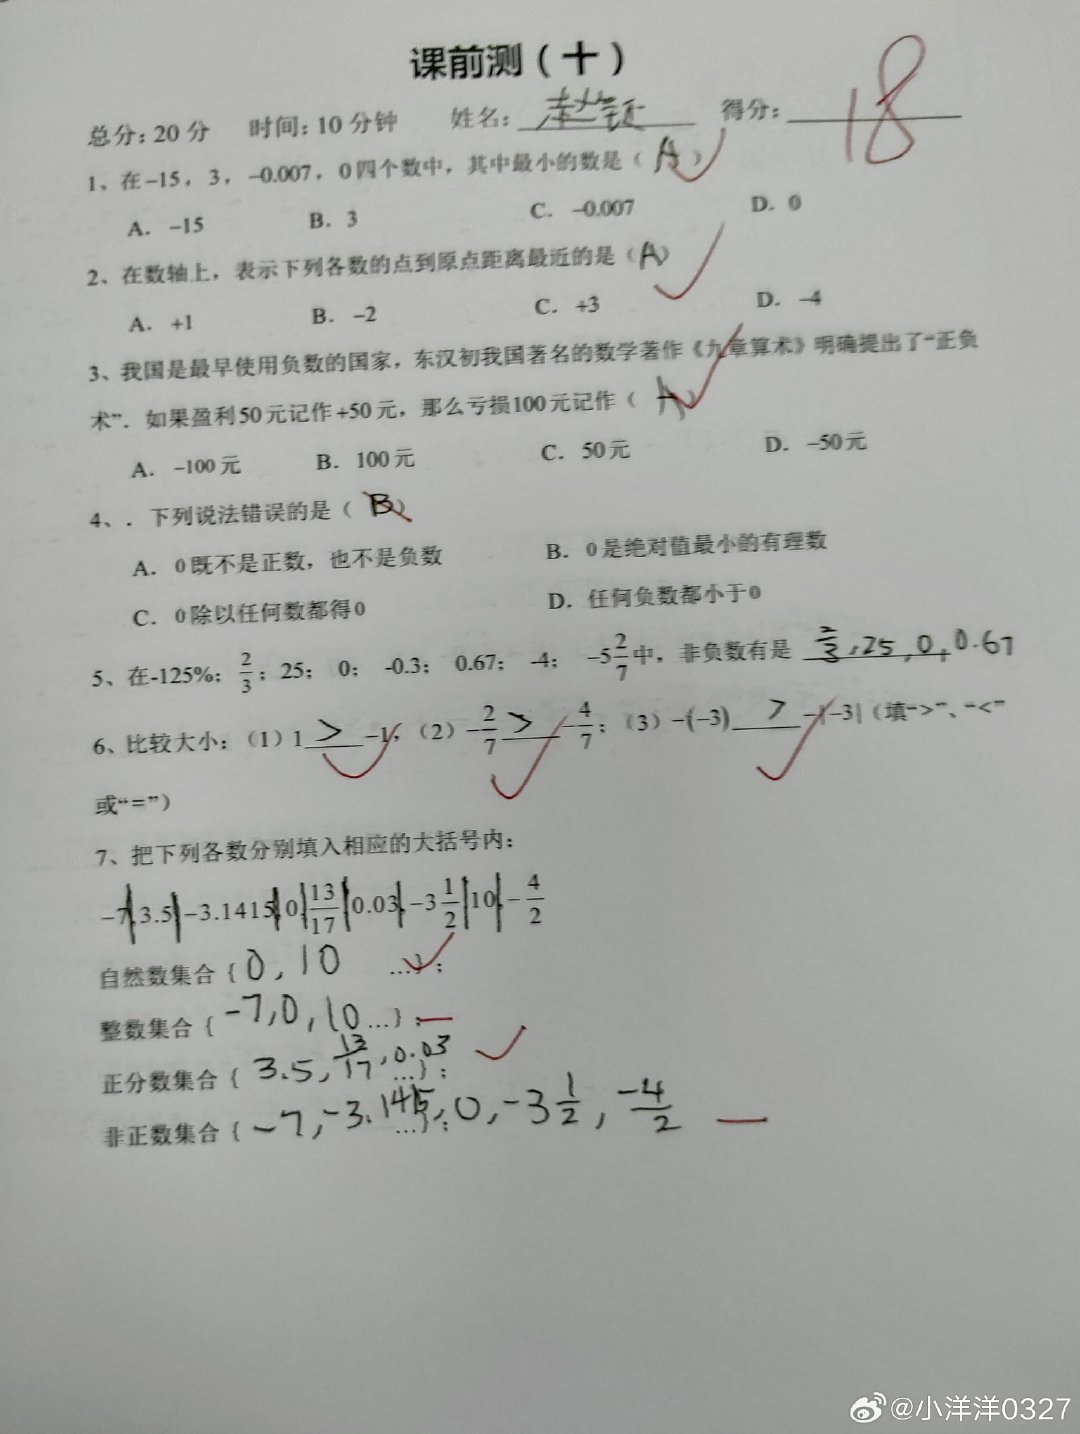 课前测（十）
总分：20 分 时间：10 分钟 姓名： 得分： 18
1、在 -15，3，-0.007，0 四个数中，其中最小的数是（ A ）
A. -15 B. 3 C. -0.007 D. 0
2、在数轴上，表示下列各数的点到原点距离最近的是（ A ）
A. +1 B. -2 C. +3 D. -4
3、我国是最早使用负数的国家，东汉初我国著名的数学著作《九章算术》明确提出了“正负
术”．如果盈利 50 元记作 +50 元，那么亏损 100 元记作（ A ）
A. -100 元 B. 100 元 C. 50 元 D. -50 元
4、．下列说法错误的是（ B ）
A. 0 既不是正数，也不是负数 B. 0 是绝对值最小的有理数
C. 0 除以任何数都得 0 D. 任何负数都小于 0
5、在-125%； 2/3；25； 0； -0.3； 0.67； -4； -5 2/7 中，非负数有是 2/3，25，0，0.67
6、比较大小：（1）1 > -1，（2）-2/7 > -4/7；（3）-(-3) > -|-3|（填“>”、“<”
或“=”）
7、把下列各数分别填入相应的大括号内：
-7，3.5，-3.1415，0，13/17，0.03，-3 1/2，10，-4/2
自然数集合｛0，10 …｝；
整数集合｛-7，0，10 …｝；
正分数集合｛3.5，13/17，0.03 …｝；
非正数集合｛-7，-3.1415，0，-3 1/2，-4/2 …｝；
@小洋洋0327